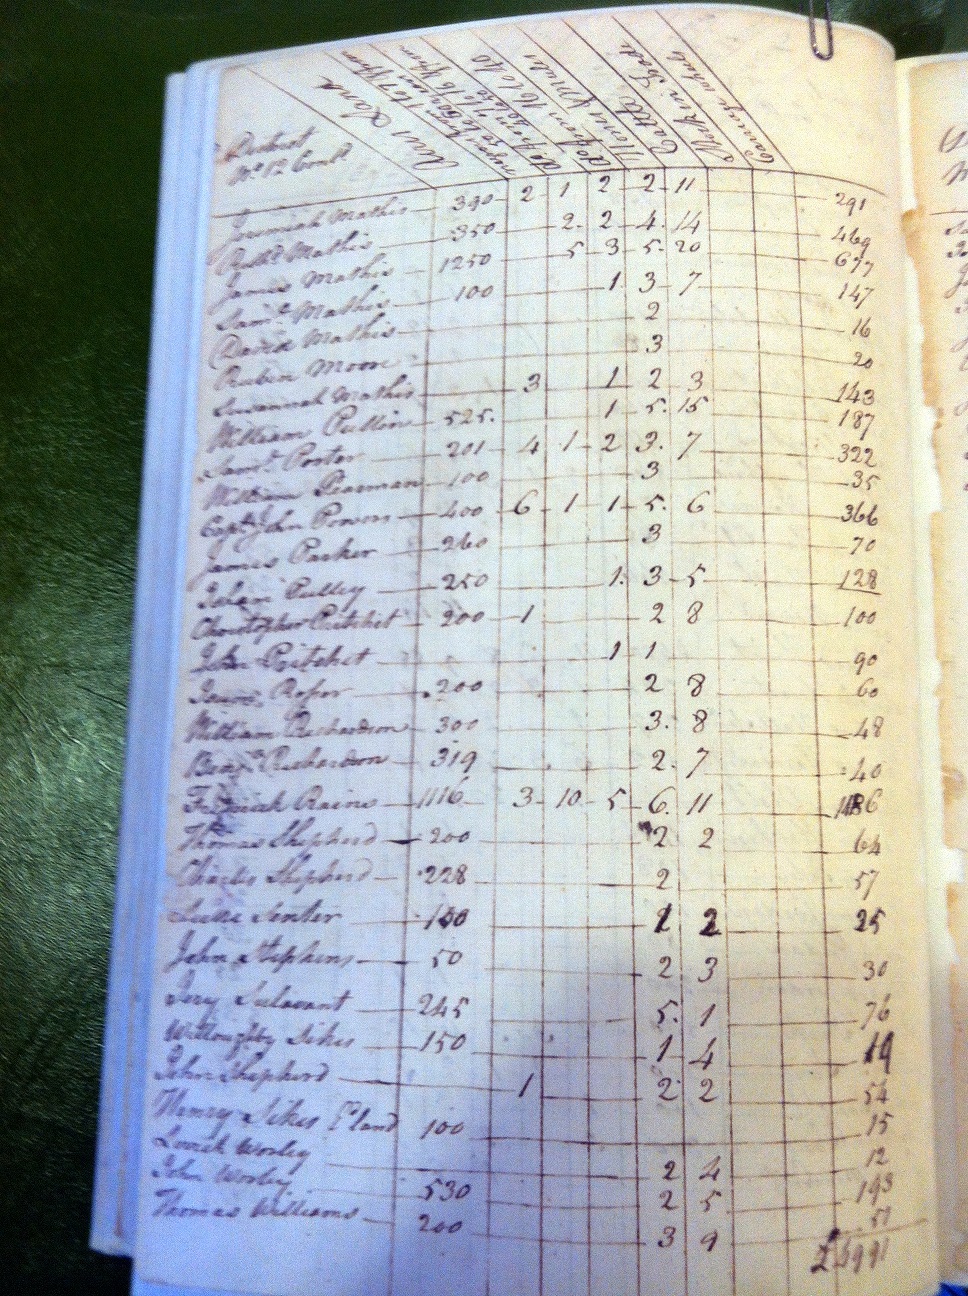 District
No. 12 Contd
Acres Land
Horses & Mules
Cattle
Stock in Trade
Carriage wheels
Jeremiah Mathis 390 2 1 2 2 11 291
Mathis 350 2 2 4 14 469
James Mathis 1250 5 3 5 20 677
Saml. Mathis 100 1 3 7 147
David Mathis 2 16
Rubin Moore 3 20
Susannah Mathis 3 1 2 3 143
William Pullin 525 1 5 15 187
Saml. Porter 201 4 1 2 3 7 322
William Pearman 100 3 35
Capt. John Powers 400 6 1 1 5 6 366
James Parker 260 3 70
Pulley 250 1 3 5 128
Christopher Pritchet 200 1 2 8 100
John Pritchet 1 1 90
Roper 200 2 8 60
William Richardson 300 3 8 48
Benj. Richardson 319 2 7 40
Fredrick Rains 1116 3 10 5 6 11
Thomas Shepherd 200 2 2 64
Charles Shepherd 228 2 57
Senter 1 2 25
John Stephens 50 2 3 30
Sulavant 245 5 1 76
Willoughby Sikes 150 1 4 19
John Shepherd 1 2 2 54
Henry Sikes land 100 15
Worley 2 4 12
John Worley 530 2 5 193
Thomas Williams 200 3 9 51